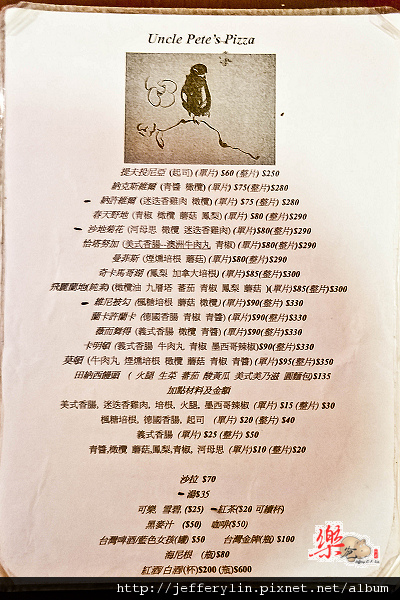 Uncle Pete's Pizza
提夫拉尼亞 (起司) (單片) $60 (整片) $250
納克斯維爾 (青醬 橄欖) (單片) $75(整片)$280
納許維爾 (迷迭香雞肉 橄欖) (單片) $75 (整片) $280
春天野地 (青椒 橄欖 蘑菇 鳳梨) (單片) $80 (整片)$290
沙地菊花 (河母思 橄欖 迷迭香雞肉)(單片)$80(整片)$290
恰塔努加 (美式香腸--澳洲牛肉丸 青椒) (單片)$80(整片)$290
曼菲斯 (煙燻培根 蘑菇) (單片)$80(整片)$290
奇卡馬哥湖 (鳳梨 加拿大培根) (單片)$85(整片)$300
飛麗蘭地(純素)(橄欖油 九層塔 蕃茄 青椒 鳳梨 蘑菇 )(單片)$85(整片)$300
維尼被勾 (楓糖培根 蘑菇 橄欖) (單片)$90(整片) $330
蘭卡許蘭卡 (德國香腸 青椒 青醬) (單片)$90(整片)$330
薇而舞得 (義式香腸 橄欖 青醬) (單片)$90(整片)$330
卡明頓 (義式香腸 牛肉丸 青椒 墨西哥辣椒)$90(整片)$330
莫頓 (牛肉丸 煙燻培根 橄欖 蘑菇 青椒 青醬)(單片)$95(整片)$350
田納西饅頭 ( 火腿 生菜 蕃茄 酸黃瓜 美式美乃滋 圓麵包)$135
加點材料及金額
美式香腸, 迷迭香雞肉, 培根, 火腿, 墨西哥辣椒 (單片) $15 (整片) $30
楓糖培根, 德國香腸, 起司 (單片) $20 (整片) $40
義式香腸 (單片) $25 (整片) $50
青醬,橄欖 蘑菇,鳳梨,青椒, 河母思 (單片)$10 (整片)$20
沙拉 $70
湯$35
可樂, 雪碧, ($25) 紅茶($20 可續杯)
黑麥汁 ($50) 咖啡($50)
台灣啤酒/藍色女孩(罐) $50 台灣金牌(瓶) $100
海尼根 (瓶)$80
紅酒/白酒(杯)$200 (瓶)$600
樂
http://jefferylin.pixnet.net/album